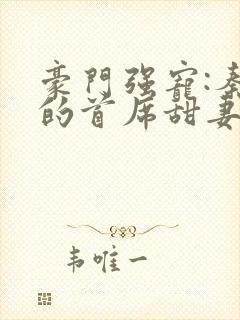 豪門强寵:秦
的首席甜妻
韦唯一